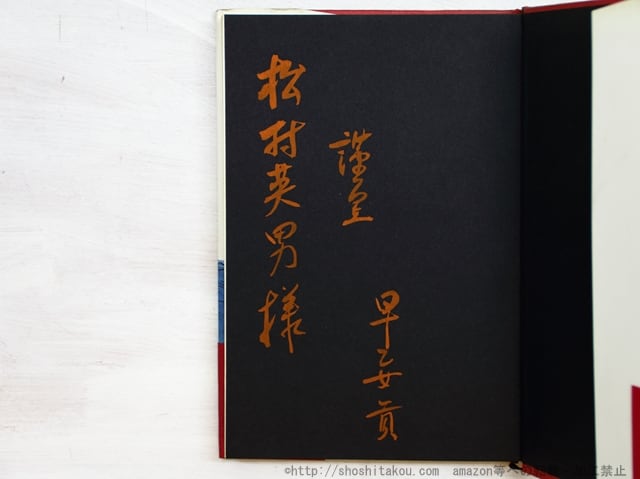 松村英男様
謹呈
早乙女貢
©http://shoshitakou.com amazon等への
禁止